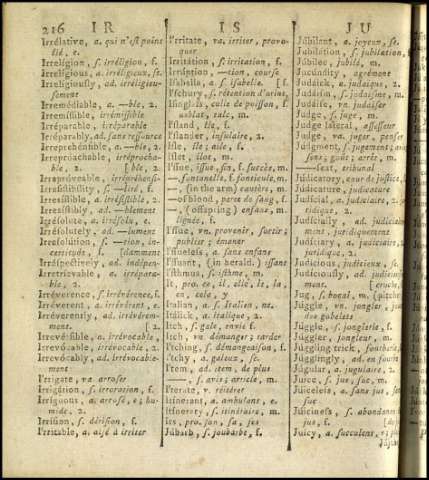 216 IR IS JU
Irrélative, a. qui n'est point
lié, e.
Irreligion, s. irréligion, f.
Irreligious, a. irréligieux, se.
Irreligiously, ad. irréligieu-
sement
Irremédiable, a. —ble, 2.
Irremissible, irrémissible
Irréparable, irréparable
Irréparably, ad. sans ressource
Irreprehénsible, a. —ble, 2.
Irrepróachable, irréprocha-
ble, 2.
Irresistibílity, s. —lité, f.
Irresístible, a. irrésistible, 2.
Irresístibly, ad. —blement
Irrésolute, a. irrésolu, e.
Irrésolutely, ad. —lument
Irresolútion, s. —tion, in-
certitude, f. [damment
Irrespéctively, ad. indépen-
Irretriévable, a. irrépara-
ble, 2.
Irréverence, s. irrévérence, f.
Irréverent, a. irrévérent, e.
Irréverently, ad. irrévérem-
ment. [2.
Irrevérsible, irrévocable,
Irrévocable, irrévocable, 2.
Irrévocably, ad. irrévocable-
ment
Irrigate, va. arroser
Irrigátion, s. irroration, f.
Irríguous, a. arrosé, e; hu-
mide, 2.
Irrísion, s. dérision, f.
Irritable, a. aisé à irriter
Irritate, va. irriter, provo-
quer
Irritátion, s. irritation, f.
Irrúption, —tion, course
Isabella, a. s. isabelle. [f.
Ischury, s. rétention d'urine,
Isinglass, colle de poisson, f.
usblat, talc, m.
Island, île, f.
Islander, insulaire, 2.
Isle, île; aile, f.
Islet, îlot, m.
Issue, issue, fin, f. succès, m.
— fontanelle, f. fonticule, m.
—, (in the arm) cautère, m.
—of blood, perte de sang, f.
—, (offspring) enfans, m.
lignée, f.
Issue, vn. provenir, sortir;
publier; émaner
Issueless, a. sans enfans
Issuant, (in herald.) issant
Isthmus, s. isthme, m.
It, pro. ce, il, elle, le, la,
en, cela, y
Italian, a. s. Italien, ne.
Itálick, a. italique, 2.
Itch, s. gale, envie f.
Itch, vn. démanger; tarder
Itching, s. démangeaison, f.
Itchy, a. galeux, se.
Item, ad. item, de plus
—, s. avis; article, m.
Iterate, v. réitérer
Itinerant, a. ambulant, e.
Itinerary, s. itinéraire, m.
Its, pro. son, sa, ses
Júbarb, s. joubarbe, f.
Júbilant, a. joyeux, se.
Jubilátion, s. jubilation, f.
Júbilee, jubilé, m.
Jucúndity, agrément
Júdaick, a. judaïque, 2.
Júdaism, s. judaïsme, m.
Júdaise, vn. judaïser
Judge, s. juge, m.
Judge lateral, assesseur
Judge, va. juger, penser
Judgment, s. jugement; avis
sens; goût; arrêt, m.
—seat, tribunal
Júdicatory, cour de justice,
Júdicature, judicature
Judícial, a. judiciaire, 2. ju-
dique, 2.
Judícially, ad. judiciaire-
ment, juridiquement
Judíciary, a. judiciaire, 2.
juridique, 2.
Judícious, judicieux, se.
Judíciously, ad. judicieuse-
ment. [cruche,
Jug, s. bocal, m. (pitcher)
Júggle, vn. jongler, jouer
des gobelets
Júggle, s. jonglerie, f.
Júggler, jongleur, m.
Júggling trick, fourberie,
Júgglingly, ad. en fourbe
Júgular, a. jugulaire, 2.
Juice, s. jus, suc, m.
Júiceless, a. sans jus, sans
suc
Júiciness, s. abondance de
jus, f.
Juicy, a. succulent, e;